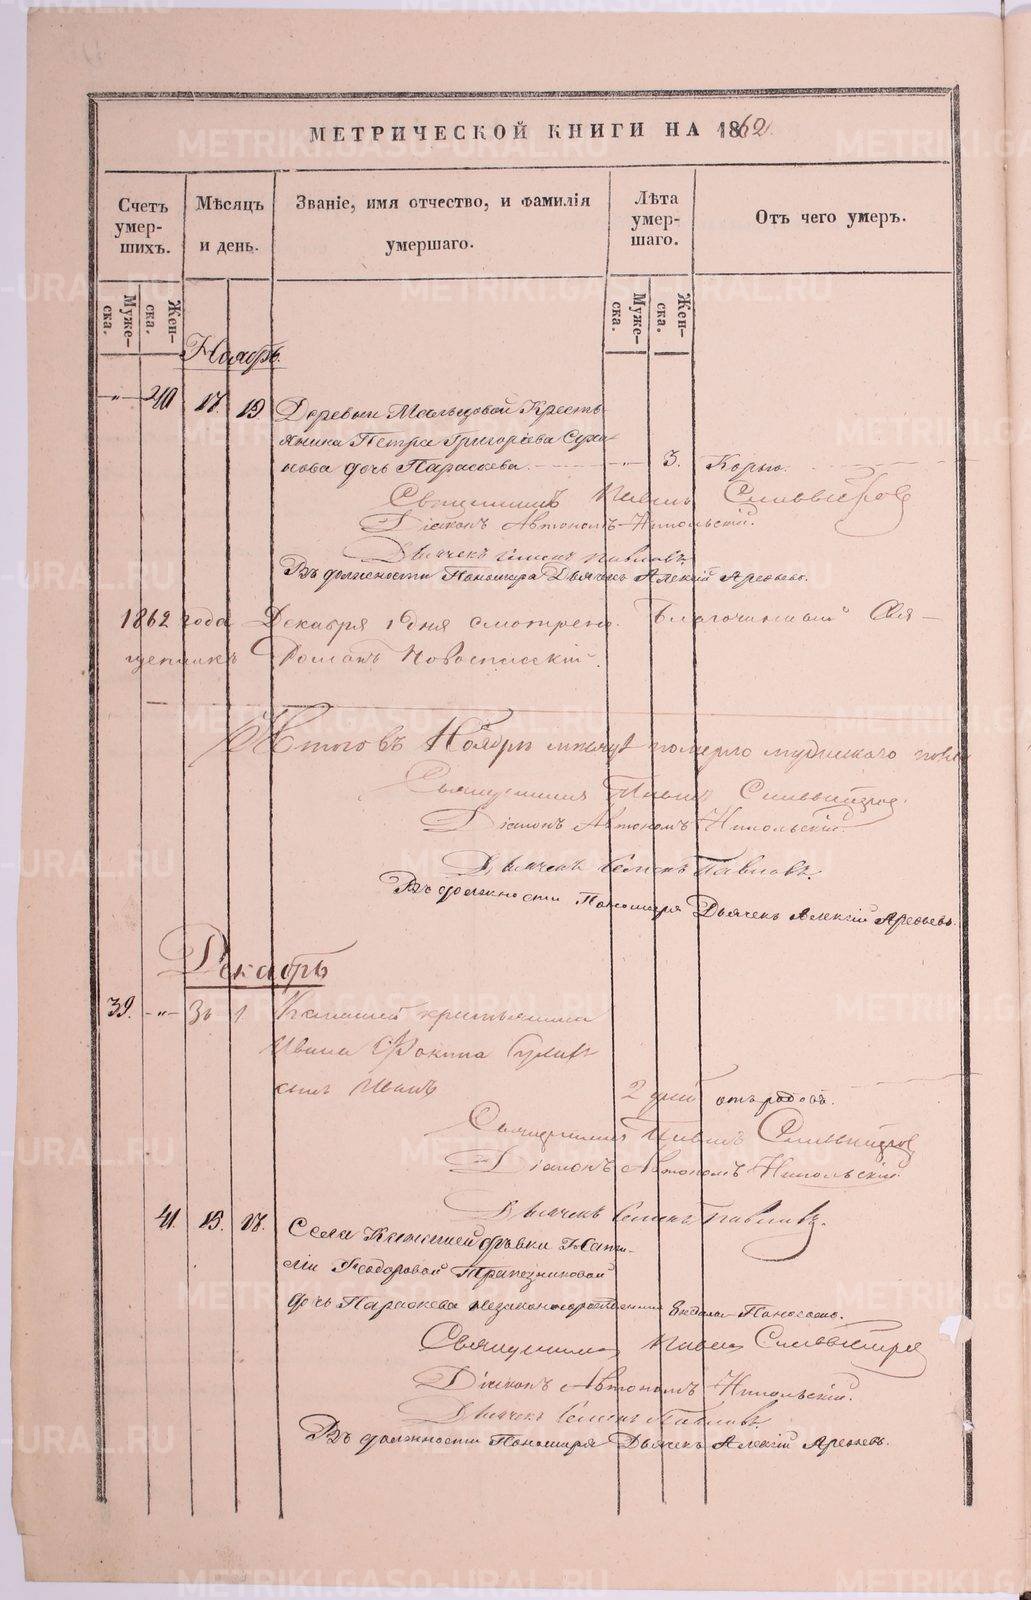 МЕТРИЧЕСКОЙ КНИГИ НА 1862.
Счетъ умер-шихъ.
Мѣсяцъ и день.
Званіе, имя отчество, и фамилія умершаго.
Лѣта умер-шаго.
Отъ чего умеръ.
Муже-ска.
Жен-ска.
Муже-ска.
Жен-ска.
Ноябрь.
-„- 40 17. 19 Деревни Мальцовой Кресть
янина Петра Григорьева Суха
нова дочь Параскева. „ 3. Корью.
Священникъ Павелъ Сильвестровъ
Діаконъ Автономъ Никольскій.
Дьячекъ Семенъ Павловъ.
Въ должности Пономаря Дьячекъ Алексій Арефьевъ.
1862 года Декабря 1 дня смотрено. Благочинный Свя-
щенникъ Романъ Новоспасскій.
Итого въ Ноябрѣ мѣсяцѣ померло мужескаго
Священникъ Павелъ Сильвестровъ.
Діаконъ Автономъ Никольскій.
Дьячекъ Семенъ Павловъ.
Въ должности Пономаря Дьячекъ Алексій Арефьевъ.
Декабрь
39. -„- 1. крестьянина
Ивана Фокина
сынъ Иванъ 2 дней отъ родовъ.
Священникъ Павелъ Сильвестровъ
Діаконъ Автономъ Никольскій
Дьячекъ Семенъ Павловъ.
41. 15. 17. Села дѣвки
Феодоровой Трапезниковой
дочь Параскева незаконнорожденная
Священникъ Павелъ Сильвестровъ
Діаконъ Автономъ Никольскій.
Дьячекъ Семенъ Павловъ
Въ должности Пономаря Дьячекъ Алексій Арефьевъ.
METRIKI.GASO-URAL.RU